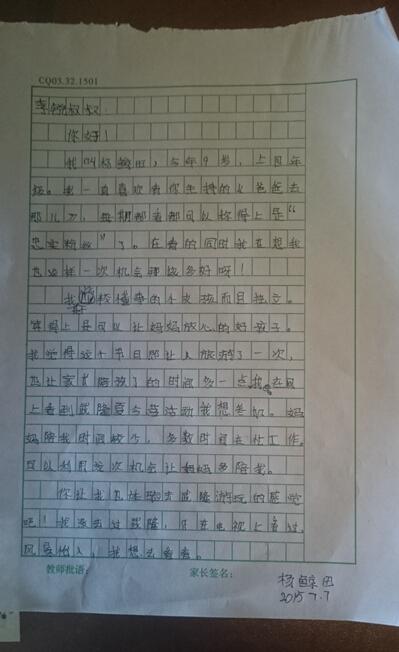 CQ03.32.1501
李锐叔叔：
你好！
我叫杨鲸田，今年9岁，上四年
级。我一直喜欢看你主持的《爸爸去
哪儿》，每期都看都可以称得上是“
忠实粉丝”了。在看的同时我在想我
也这样一次机会那该多好呀！
我比较懂事的个皮孩而且独立。
算得上是可以让妈妈放心的好孩子。
我觉得这个节目即让人旅游了一次，
也让家长陪孩子的时间多一点。我在网
上看到武隆夏令营活动我想参加。妈
妈陪我时间较少，多数时间在忙工作。
可以利用这次机会让妈妈多陪我。
你让我也体验武隆游玩的感觉
吧！我没去过武隆，只在电视上看过，
风景怡人，我想去看看。
教师批语： 家长签名：
杨鲸田
2015.7.7